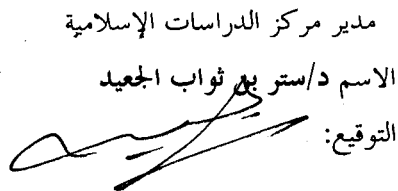 مدير مركز الدراسات الإسلامية
الاسم د/ستر بن ثواب الجعيد
التوقيع: